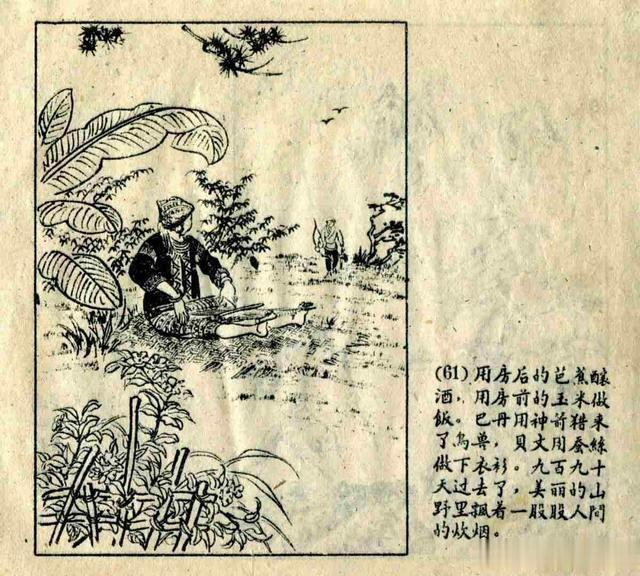 (61) 用房后的芭蕉釀
酒，用房前的玉米做
飯。巴丹用神箭猎来
了鳥兽，貝文用蚕絲
做下衣衫。九百九十
天过去了，美丽的山
野里飄着一股股人間
的炊烟。